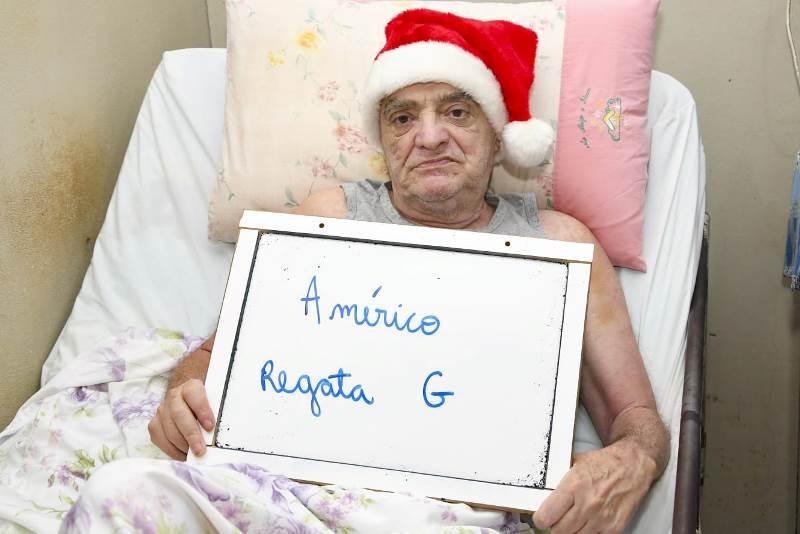 Américo
Regata G